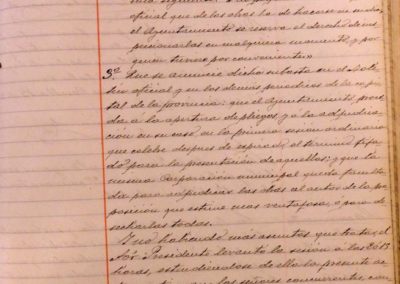 oficial que de las obras ha de hacerse
el Ayuntamiento se reserva el derecho de ins
peccionarlas en cualquiera momento, y por
quien tuviese por conveniente»
3º Que se anuncie dicha subasta en el Bole
tin oficial y en los demas periodicos de la capi
tal de la provincia: que el Ayuntamiento, proce
da a la apertura de pliegos, y a la adjudica
ción en su caso en la primera sesion ordinaria
que celebre despues de espirado el termino fija
do para la presentación de aquellos; y que la
misma Corporación municipal queda facul
da para adjudicar las obras al autor de la pro
posición que estime mas ventajosa, o para de
secharlas todas.
Y no habiendo mas asuntos que tratar, el
Sor. Presidente levantó la sesión a las
horas, estendiendose de ella la presente
que los señores concurrentes con